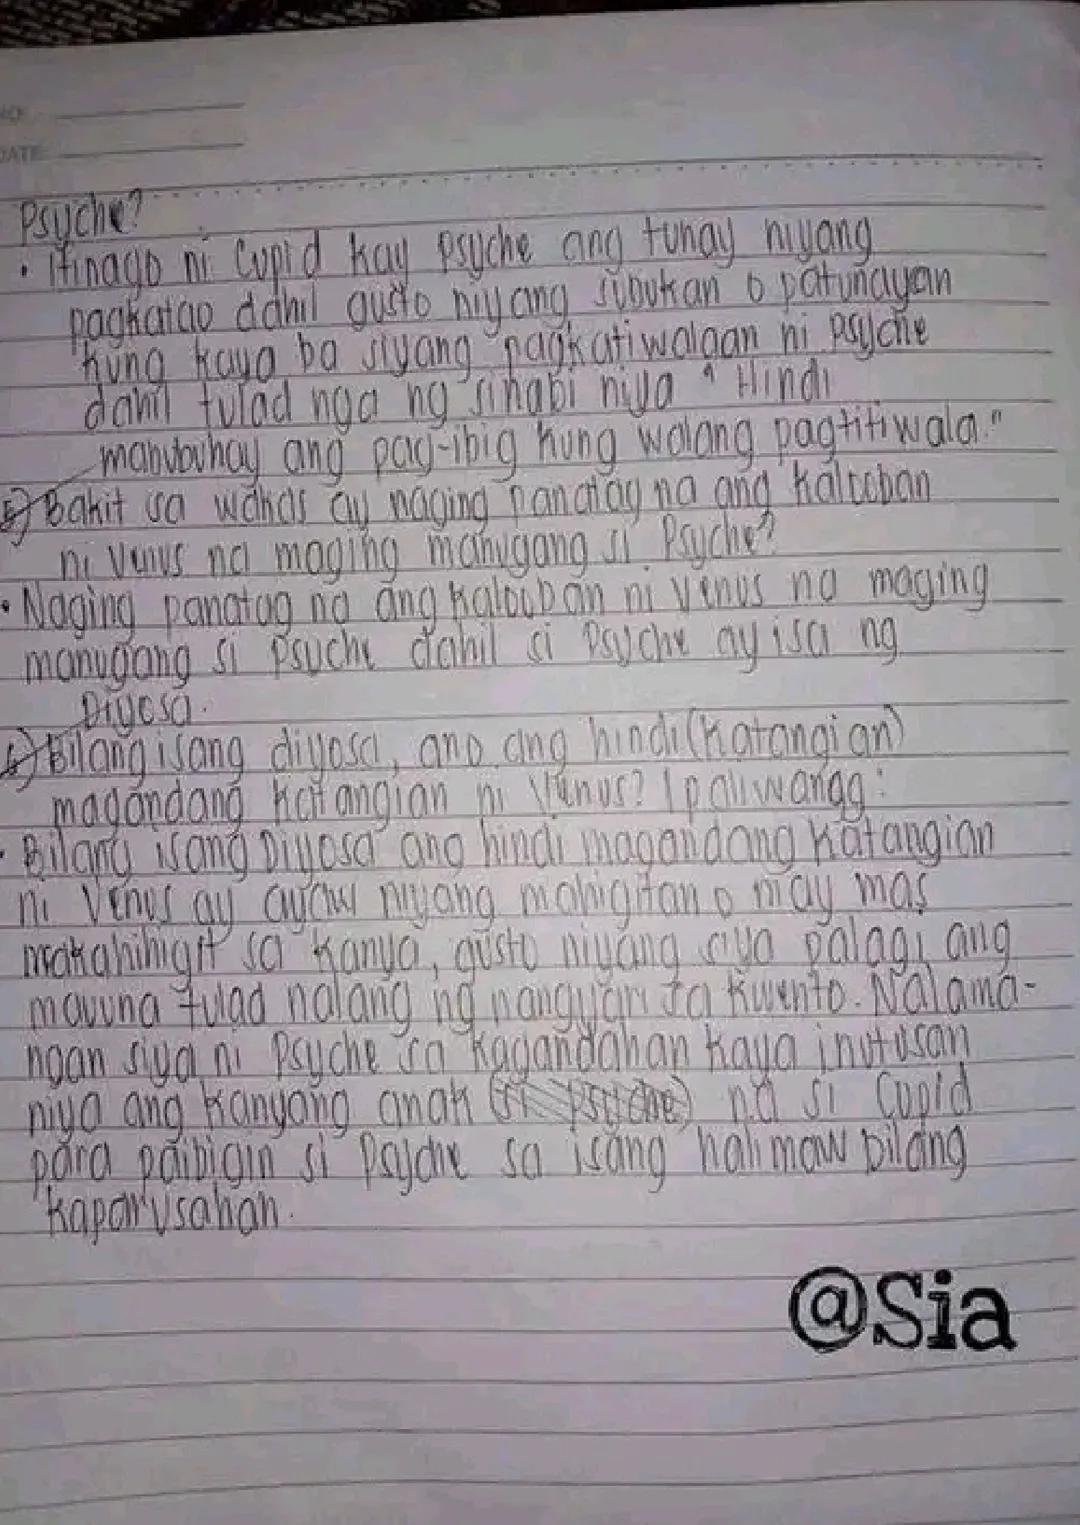 NO.
DATE
Psyche?
• Itinago ni Cupid kay Psyche ang tunay niyang
pagkatao dahil gusto niyang subukan o patunayan
kung kaya ba siyang pagkatiwalaan ni Psyche
dahil tulad nga ng sinabi niya " Hindi
mabubuhay ang pag-ibig kung walang pagtitiwala."
5) Bakit sa wakas ay naging panatag na ang kalooban
ni Venus na maging manugang si Psyche?
• Naging panatag na ang kalooban ni Venus na maging
manugang si Psyche dahil si Psyche ay isa ng
Diyosa.
6) Bilang isang diyosa, ano ang hindi (katangian)
magandang katangian ni Venus? Ipaliwanag :
• Bilang isang Diyosa ang hindi magandang katangian
ni Venus ay ayaw niyang mahigitan o may mas
makahihigit sa kanya, gusto niyang siya palagi ang
mauuna tulad nalang ng nangyari sa kwento. Nalama-
ngan siya ni Psyche sa kagandahan kaya inutusan
niya ang kanyang anak (si Psyche) na si Cupid
para paibigin si Psyche sa isang halimaw bilang
kaparusahan.
@Sia